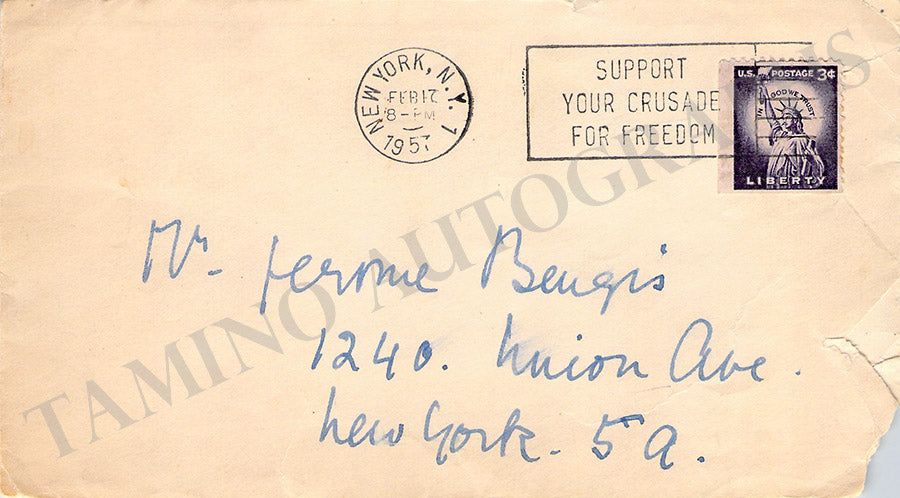 NEW YORK, N.Y. 1
FEB 17
8-PM
1957
SUPPORT
YOUR CRUSADE
FOR FREEDOM
U.S. POSTAGE 3¢
IN GOD WE TRUST
LIBERTY
Mr. Jerome Bengis
1240. Union Ave.
New York. 59.
TAMINO AUTOGRAPHS